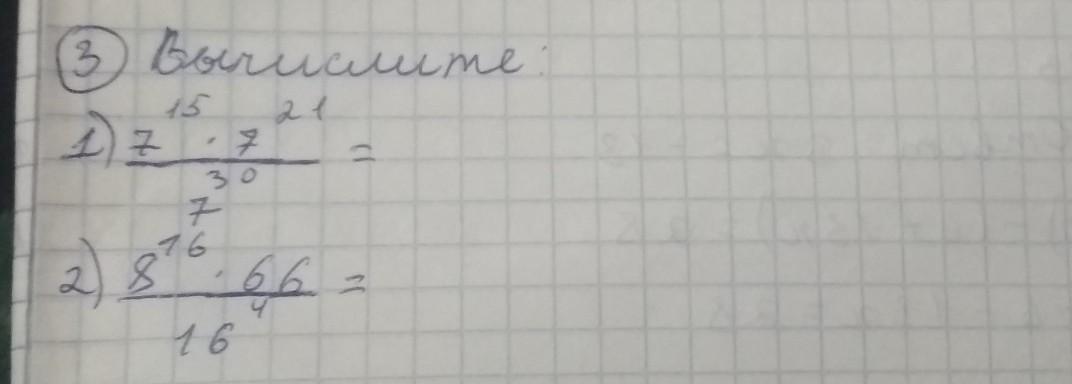 ③ Вычислите:
1) \frac{7^{15} \cdot 7^{21}}{7^{30}} =
2) \frac{8^{16} \cdot 66}{16^{4}} =